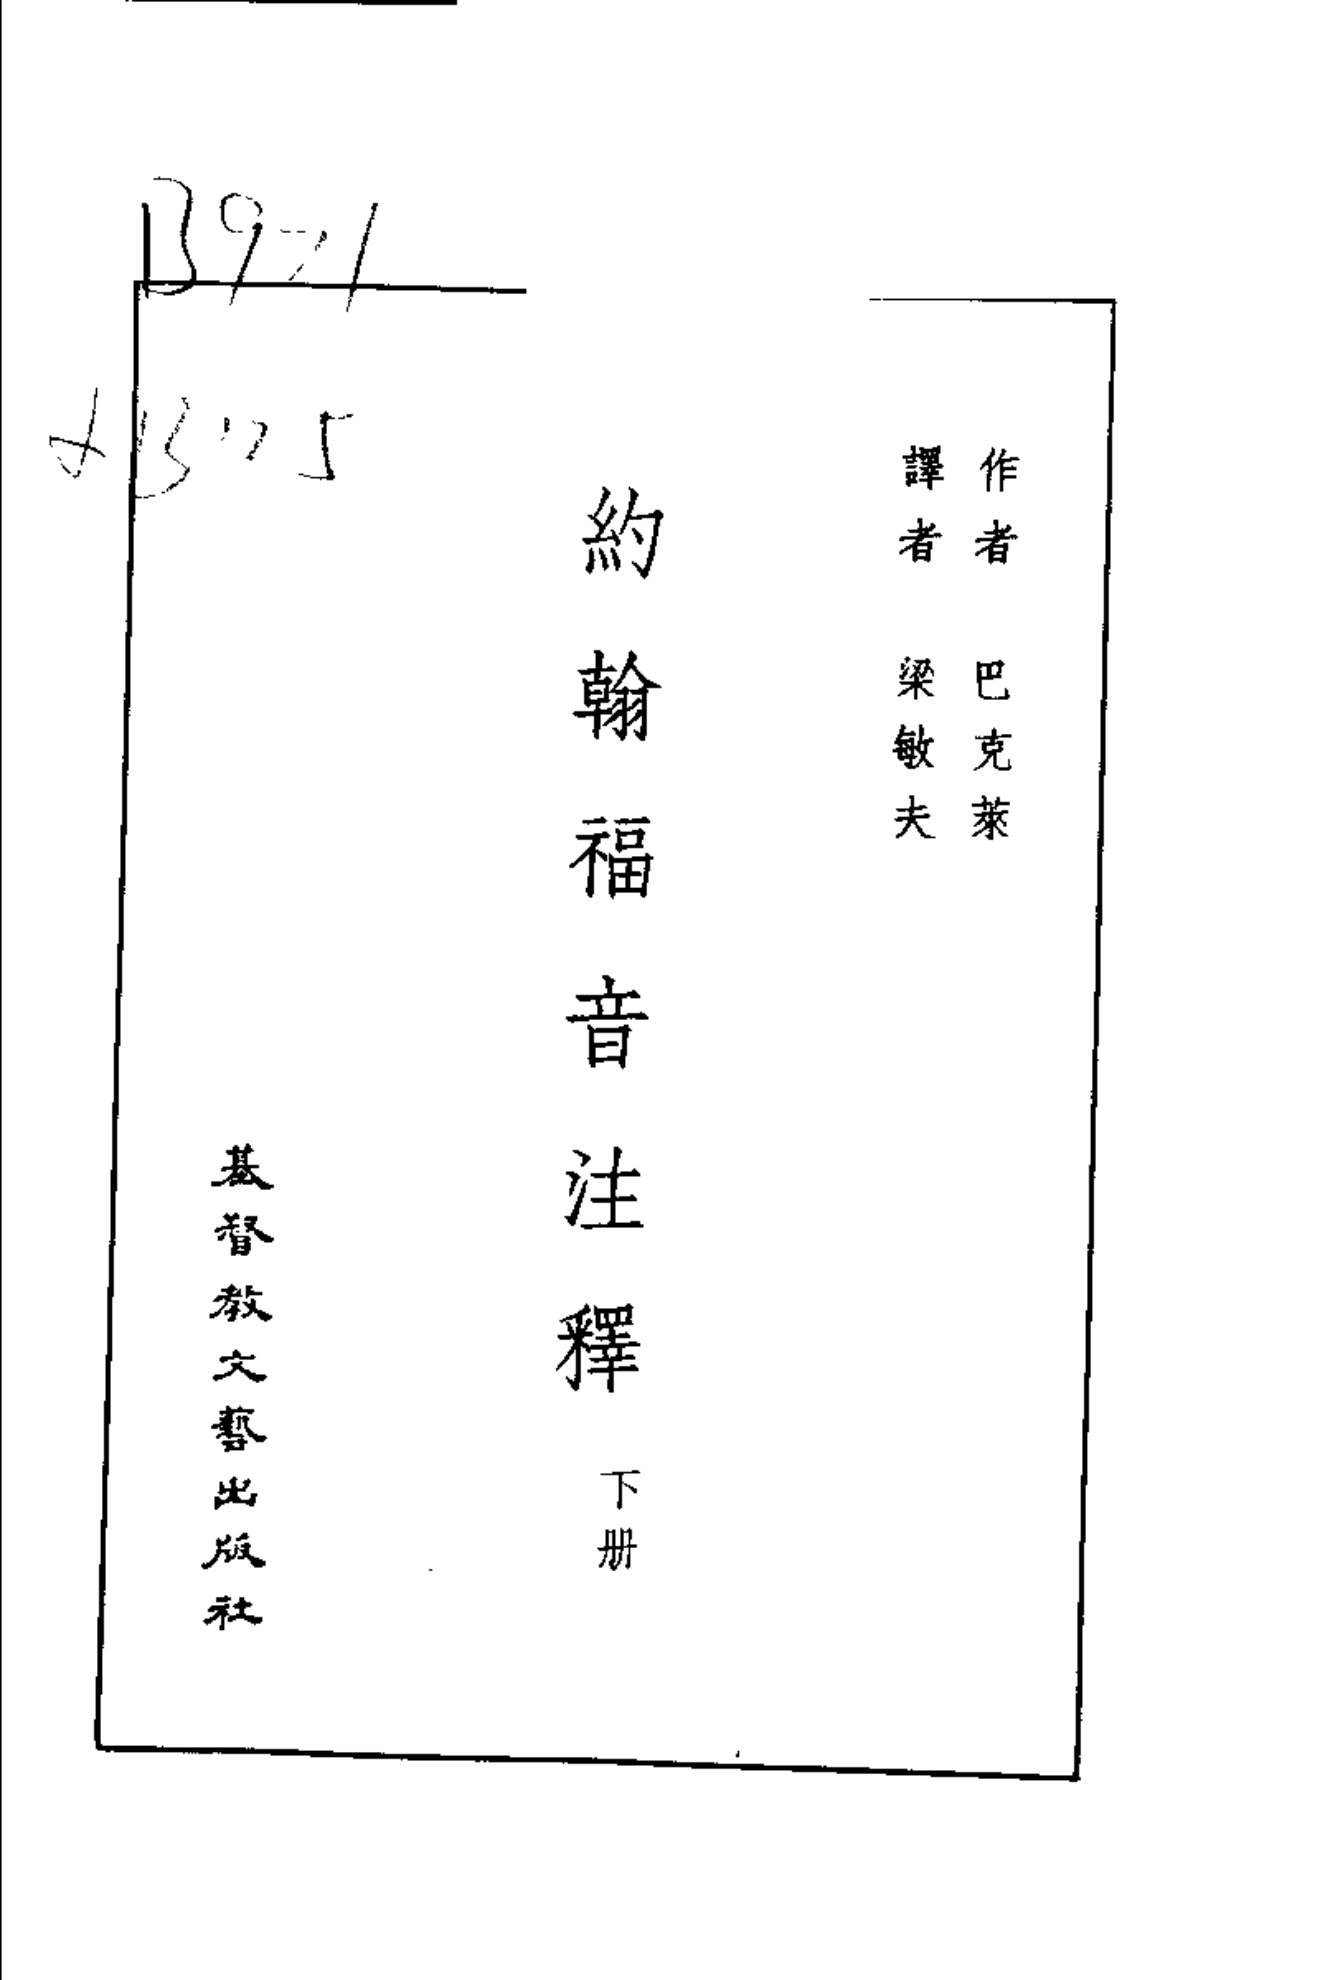 作者 巴克萊
譯者 梁敏夫
約翰福音注釋 下册
基督教文藝出版社